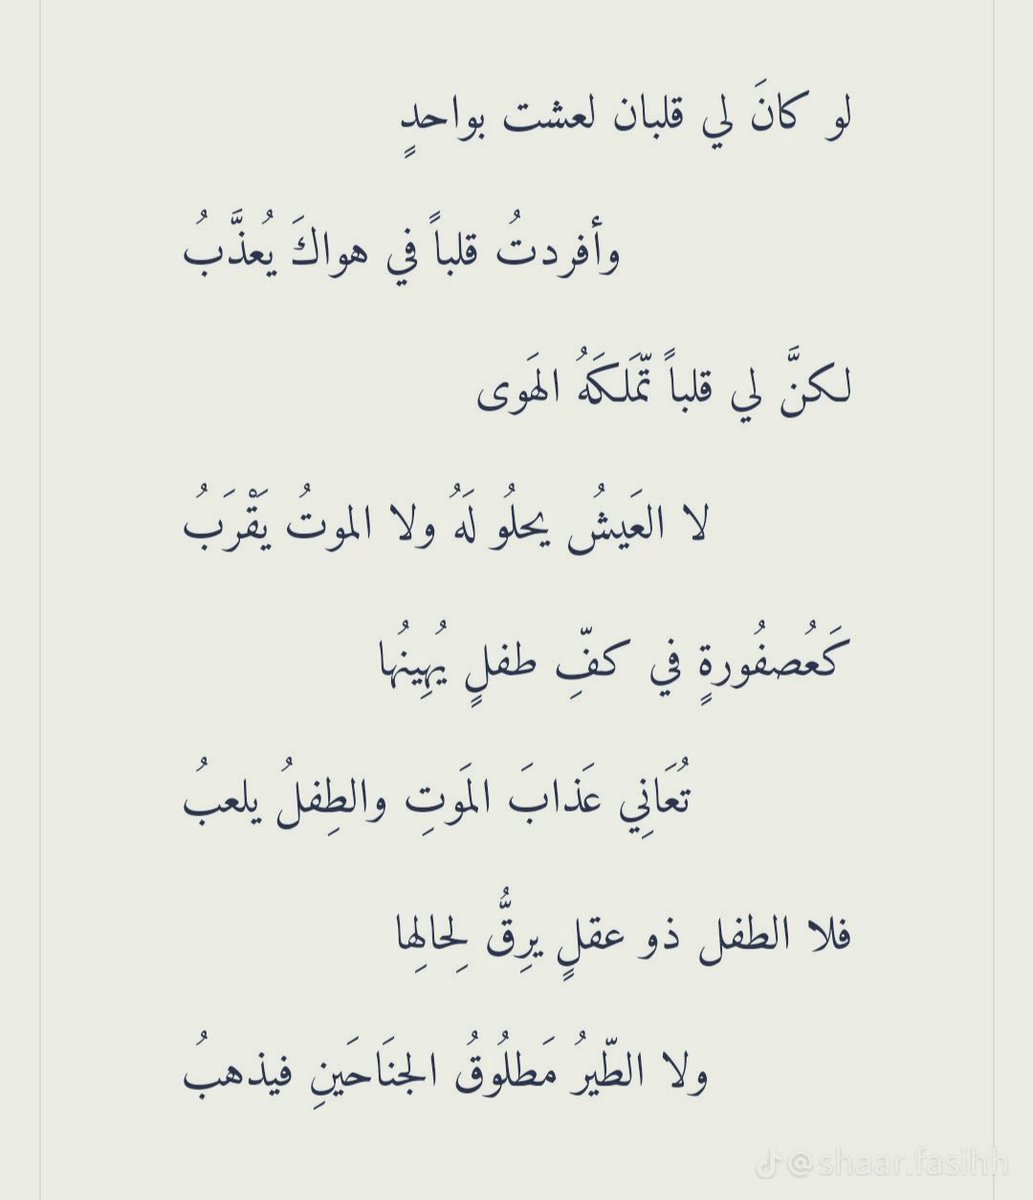 لو كانَ لي قلبان لعشت بواحدٍ
وأفردتُ قلباً في هواكَ يُعذَّبُ
لكنَّ لي قلباً تّمَلكَهُ الهَوى
لا العَيشُ يحلُو لَهُ ولا الموتُ يَقْرَبُ
كَعُصفُورةٍ في كفِّ طفلٍ يُهِينُها
تُعَانِي عَذابَ المَوتِ والطِفلُ يلعبُ
فلا الطفل ذو عقلٍ يرِقُّ لِحالِها
ولا الطّيرُ مَطلُوقُ الجنَاحَينِ فيذهبُ
@shaar.fasihh